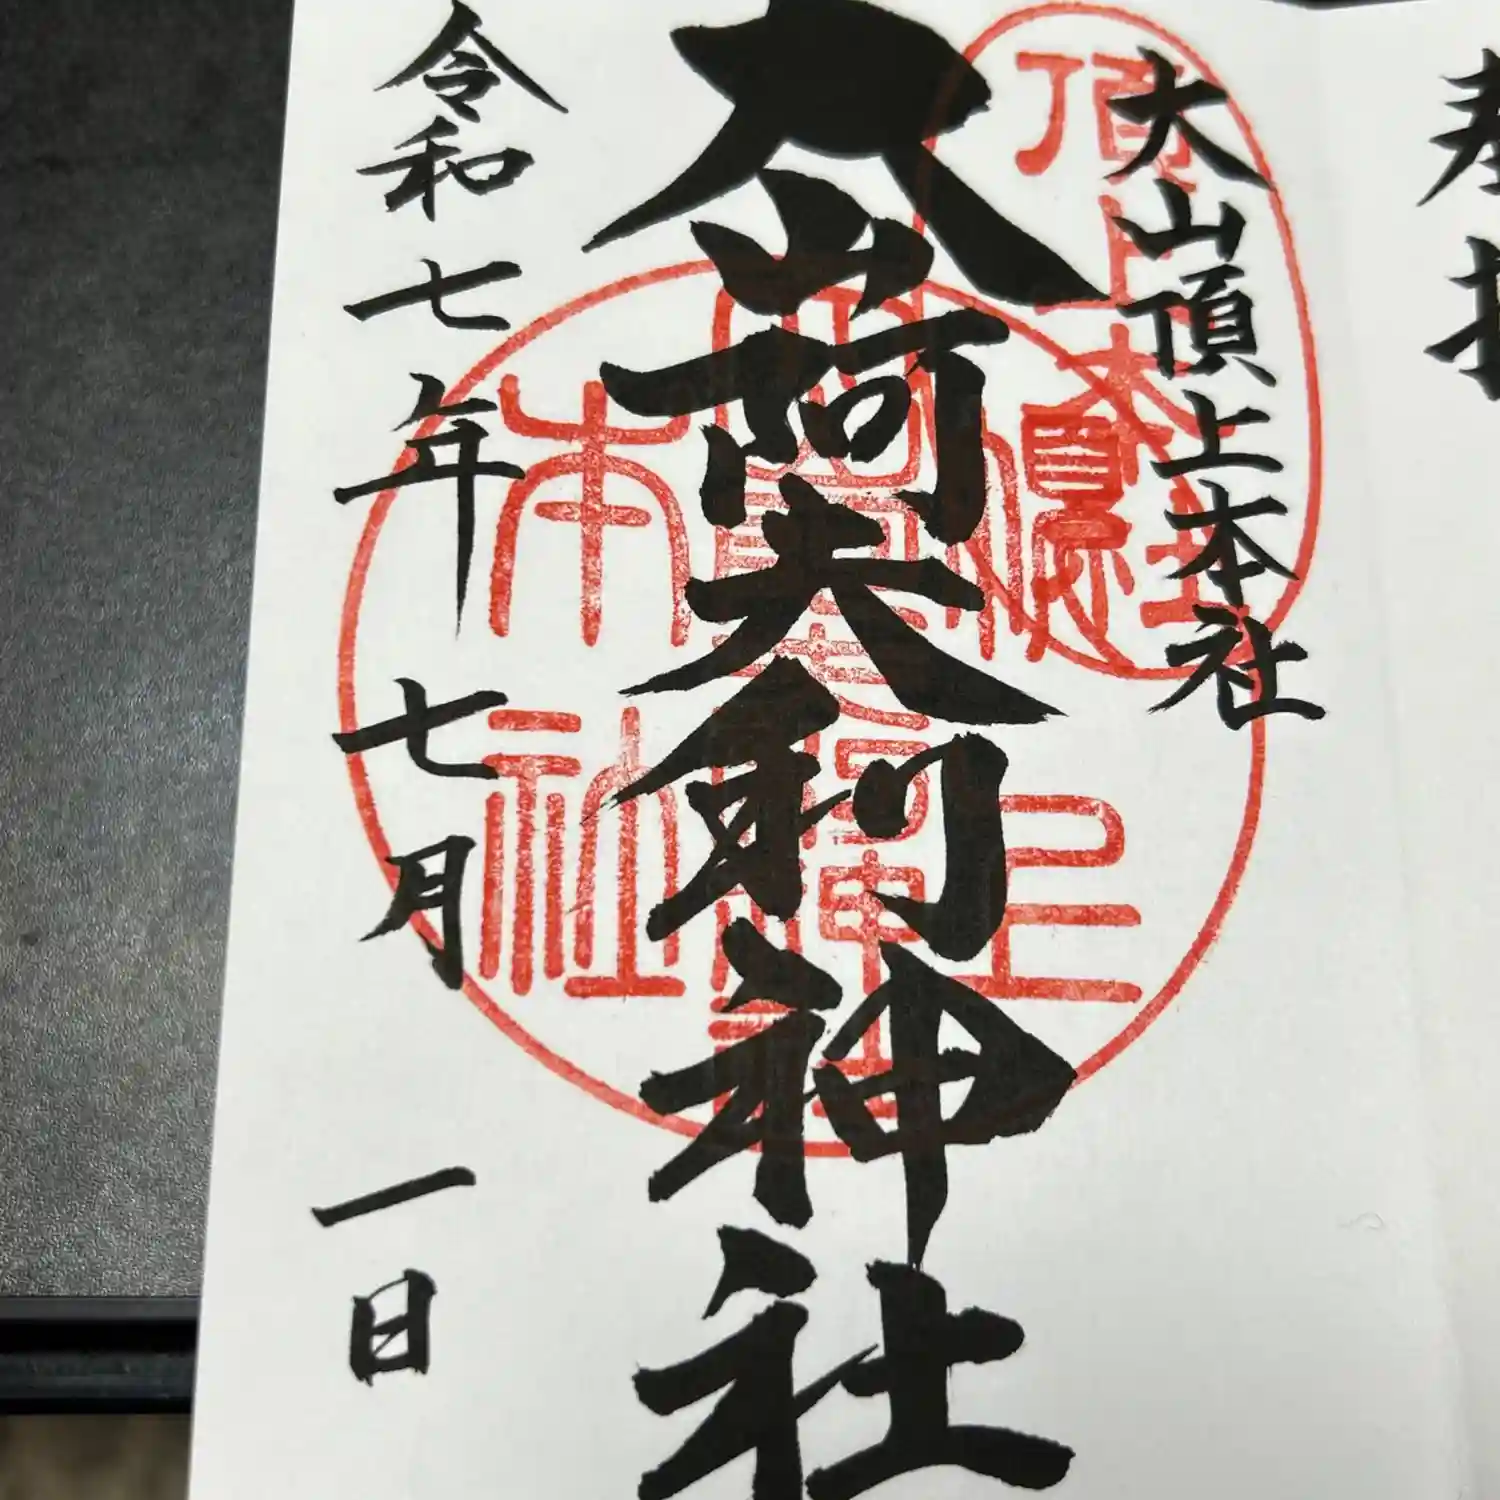 奉拝
大山頂上本社
頂上本社
大山阿夫利神社
頂上
本社
令和七年七月一日